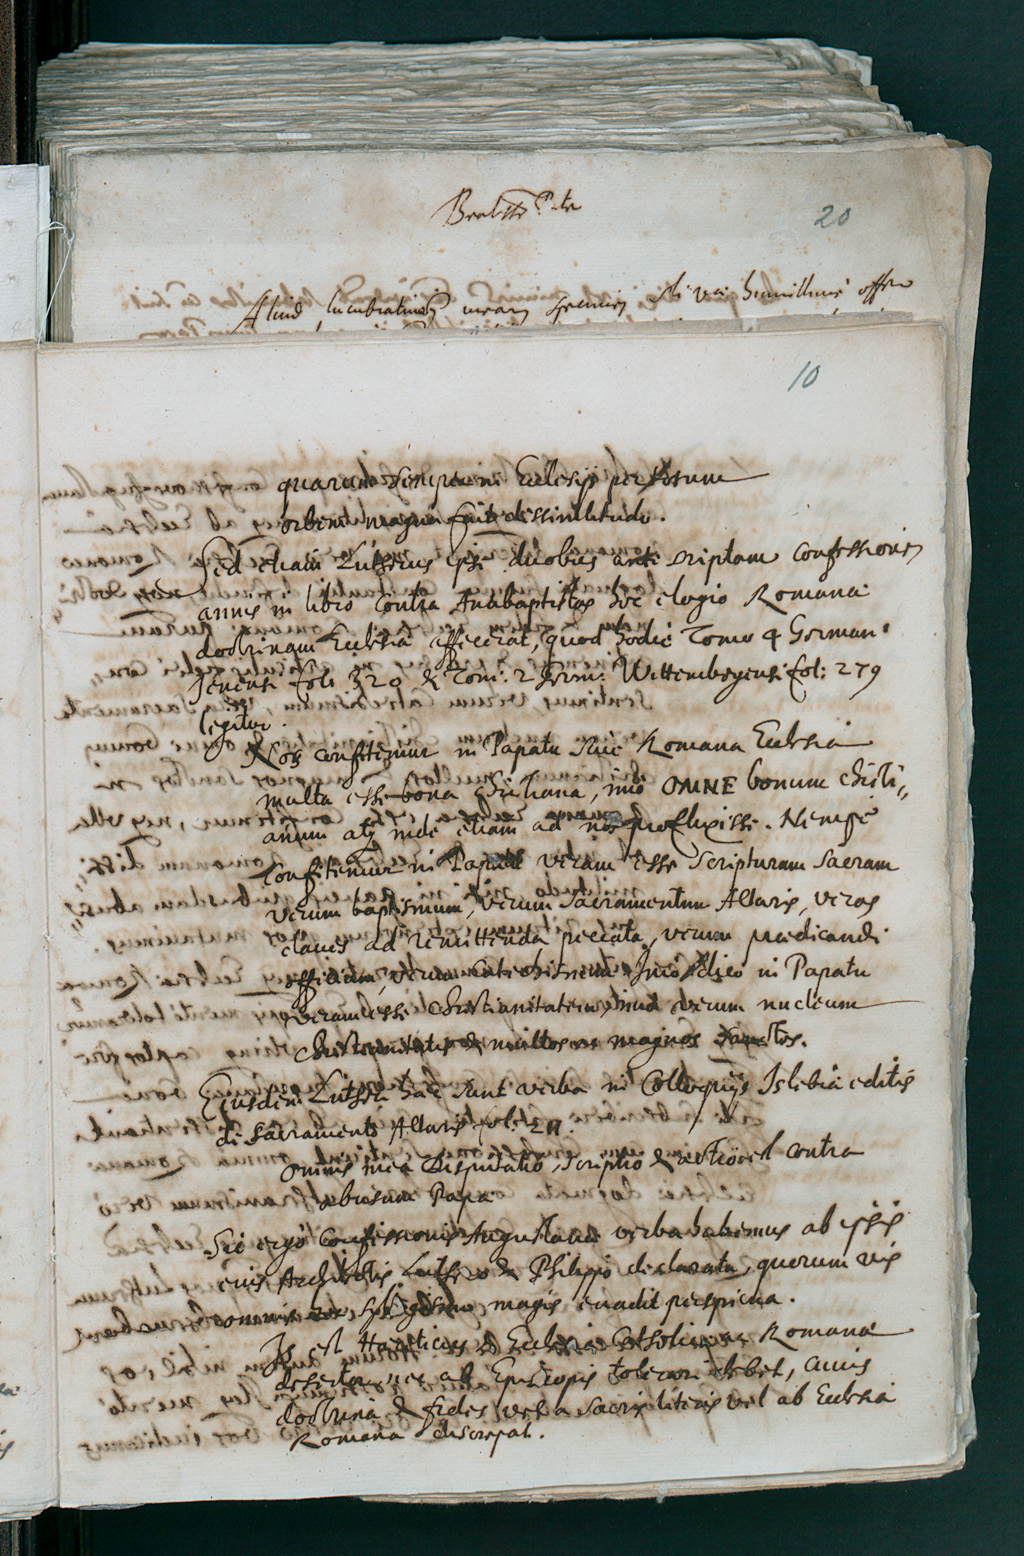 Beatisse Pater
20
Aliud lucubrationū mearū specimen Sti Vrae humillimè offero
10
quarum semper in Ecclesijs per totum
orbem magna fuit dissimilitudo.
Sed etiam Lutherus ipse duobus ante scriptam Confessionem
annis in libro contra Anabaptistas hoc elogio Romanā
doctrinam Ecclesiā affecerat, quod hodie Tomo 4 German:
Jenensi fol: 320 & Tom: 2 Germ: Wittembergensi fol: 279
legitur.
Nos confitemur in Papatu sive Romana Ecclesia
multa esse bona Christiana, imo OMNE bonum Christi„
anum atq inde etiam ad nos profluxisse. Nempe
confitemur in Papatu veram esse scripturam sacram
verum baptismum, verum sacramentum Altaris, veras
claues ad remittenda peccata, verum praedicandi
officium, verum Catechismum. Imo dico in Papatu
veram esse Christianitatem, imò verum nucleum
Christianitatis & multos ac magnos Sanctos.
Eiusdem Lutheri haec sunt verba in Colloquijs Islebiae editis
de Sacramento Altaris fol:
Omnis mea Disputatio, scriptio & actio est contra
Papa
Sic ergo Confessionis Augustanae verba habemus ab ipsis
eius Architectis Luthero & Philippo declarata, quorum vis
omnis ex syllogismo magis euadit perspicua.
Is est Haereticus & Ecclesiae Catholicae Romanae
desertor nec ab Episcopis tolerari debet, cuius
doctrina & fides vel a sacris literis vel ab Ecclesia
Romana discrepat.